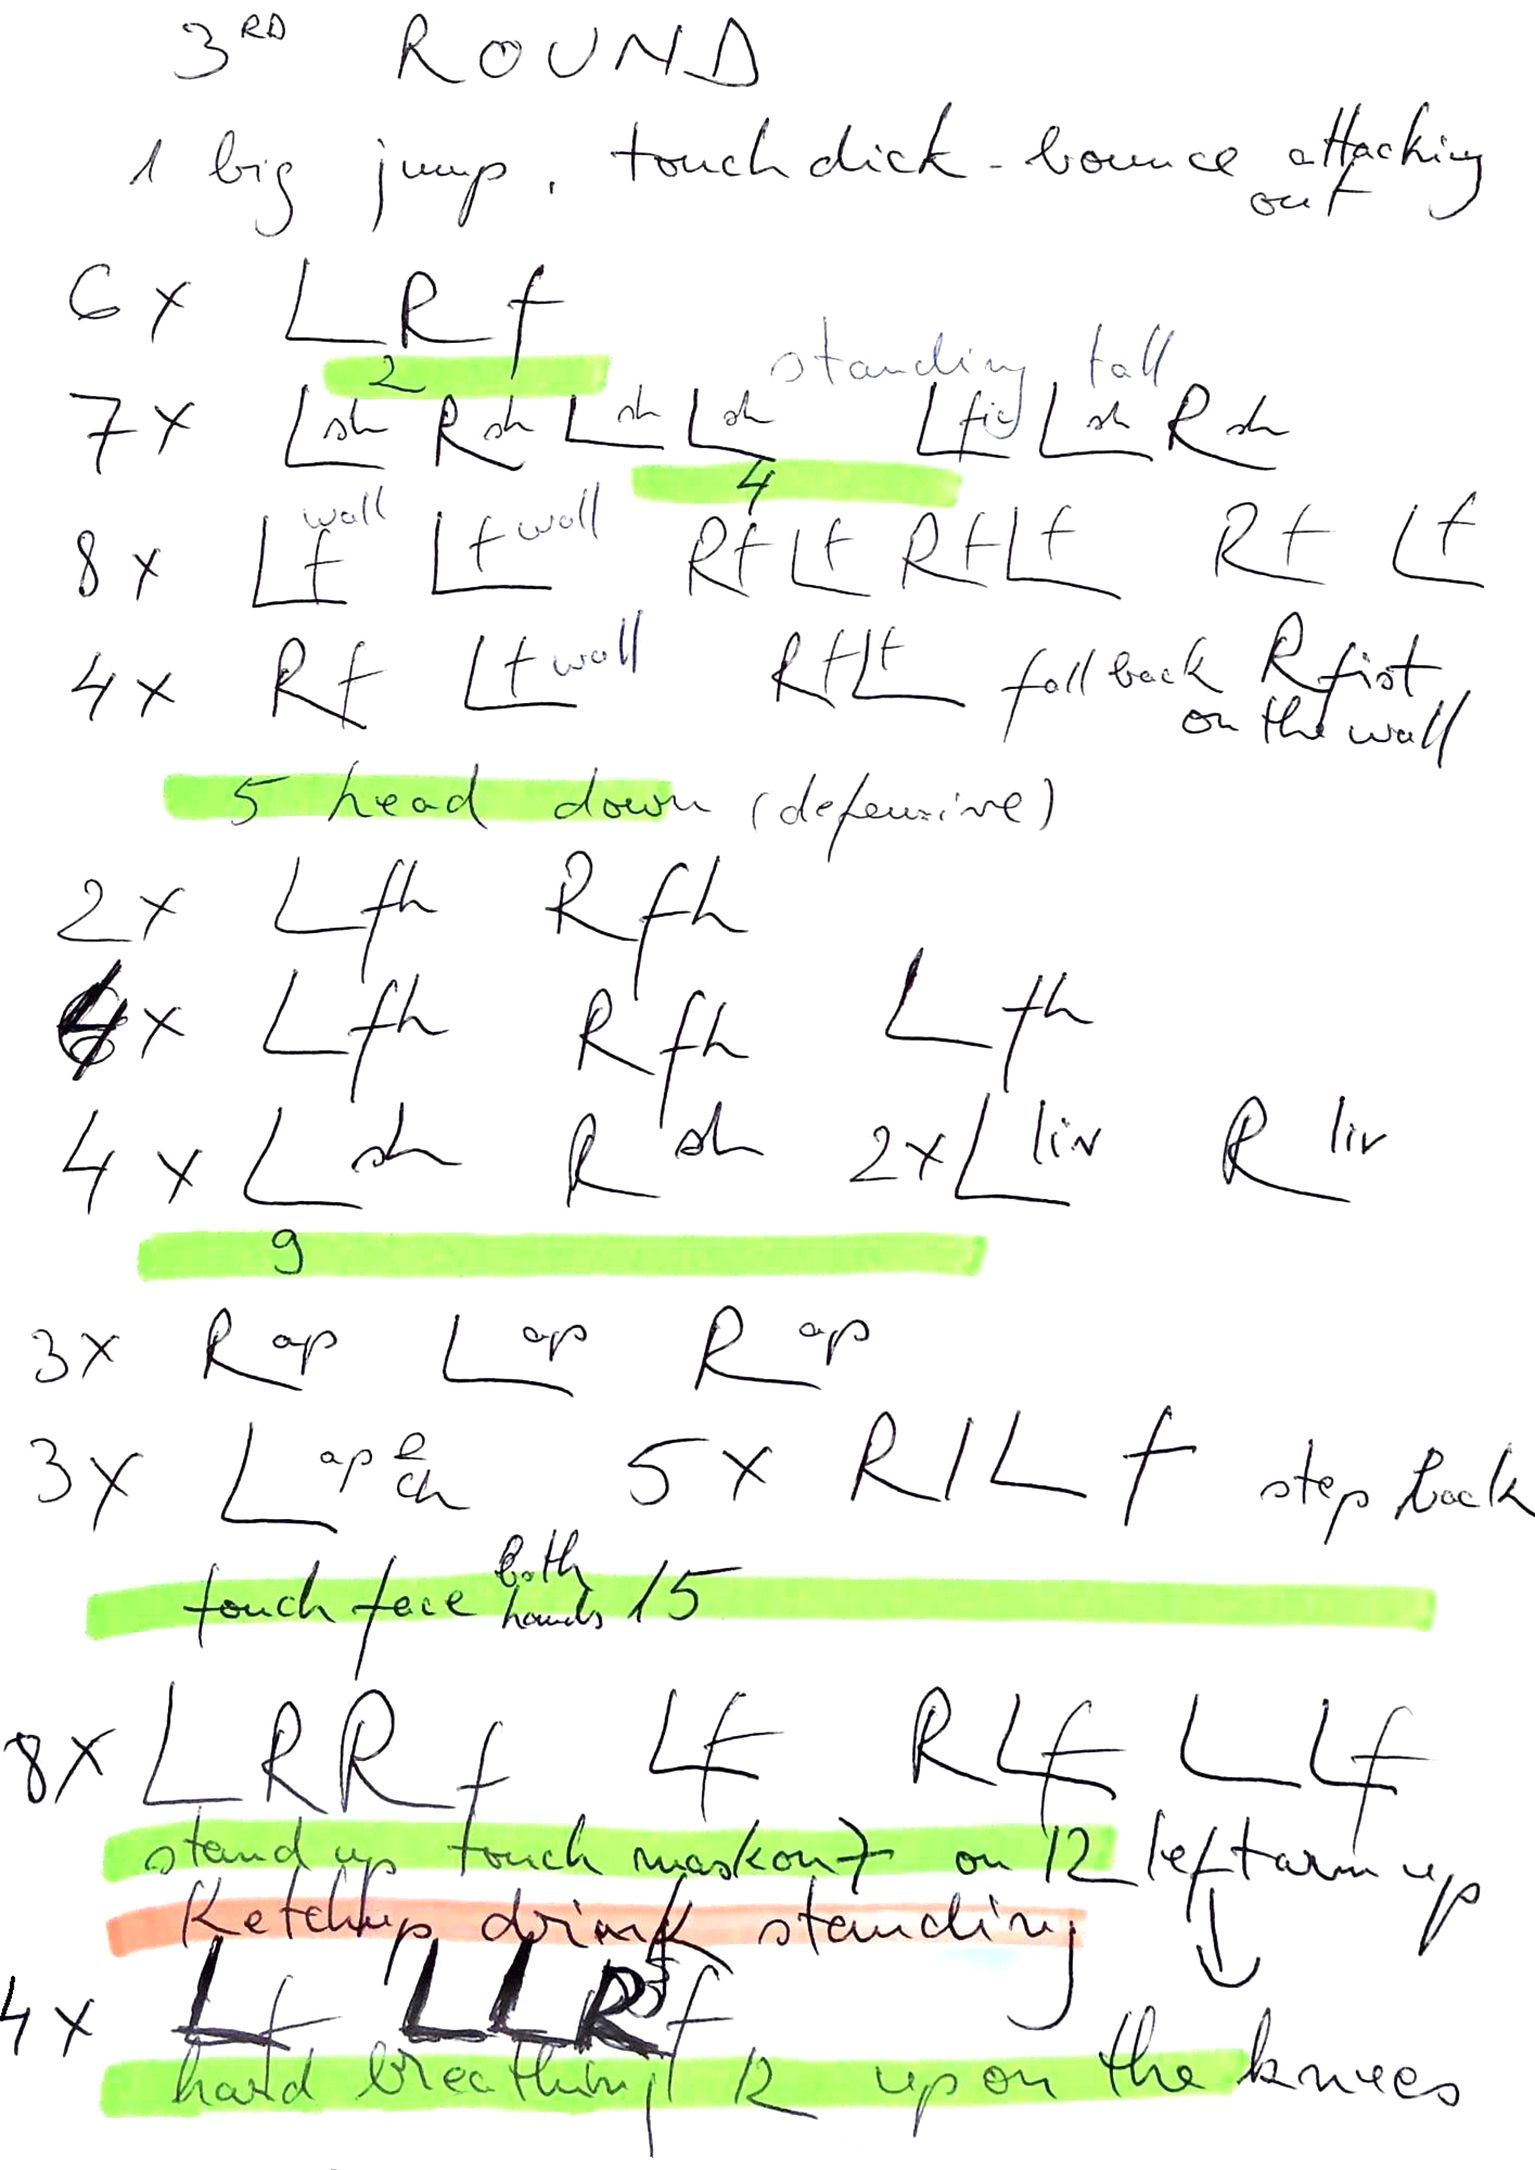 3RD ROUND
1 big jump. touch dick - bounce attacking out
6x L R f
2
standing tall
7x Lsh Rsh Lsh Lsh Lfig Lsh Rsh
4
8x Lf wall Lf wall Rf Lf Rf Lf Rf Lf
4x Rf Lf wall Rf Lf fall back R fist
on the wall
5 head down (defensive)
2x Lfh Rfh
4x Lfh Rfh Lfh
4x Lsh Rsh 2x Lliv Rliv
9
3x Rap Lap Rap
3x Lap ch 5x R/L f step back
touch face both hands 15
8x L R R f Lf R Lf L Lf
stand up touch on 12 left arm up
Ketchup drink standing
4x Lf L L R f
hard breathing 12 up on the knees